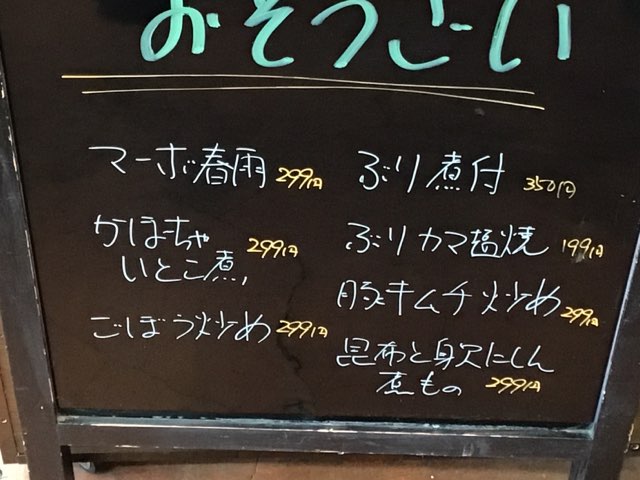 おそうざい
マーボ春雨 299円
かぼちゃ
いとこ煮 299円
ごぼう炒め 299円
ぶり煮付 350円
ぶりカマ塩焼 199円
豚キムチ炒め 299円
昆布と身欠にしん
煮もの 299円